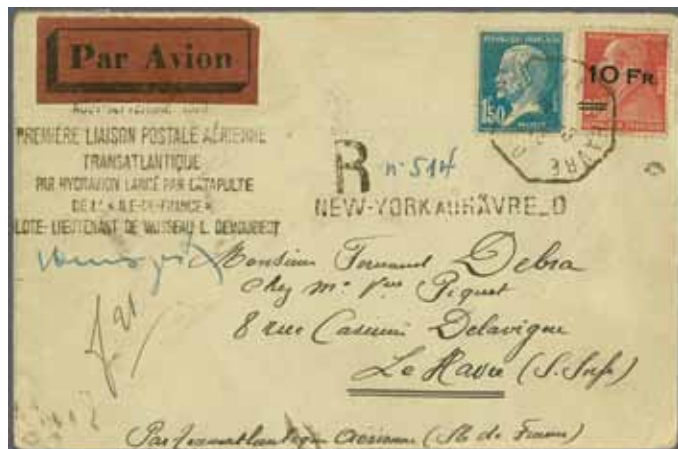 Par Avion
PREMIÈRE LIAISON POSTALE AÉRIENNE
TRANSATLANTIQUE
PAR HYDRAVION LANCÉ PAR CATAPULTE
DE L'«ILE-DE-FRANCE»
LOTE: LIEUTENANT DE VAISSEAU L. DEMOUGEOT
REPUBLIQUE FRANÇAISE
1F50
POSTES
10 FR.
HAVRE
R n° 514
NEW-YORK AU HÂVRE_D
Monsieur Fernand Debra
Chez Mr Piquet
8 rue Casimir Delavigne
Le Havre (S. Infre)
Par Transatlantique Aérienne (Ile de France)